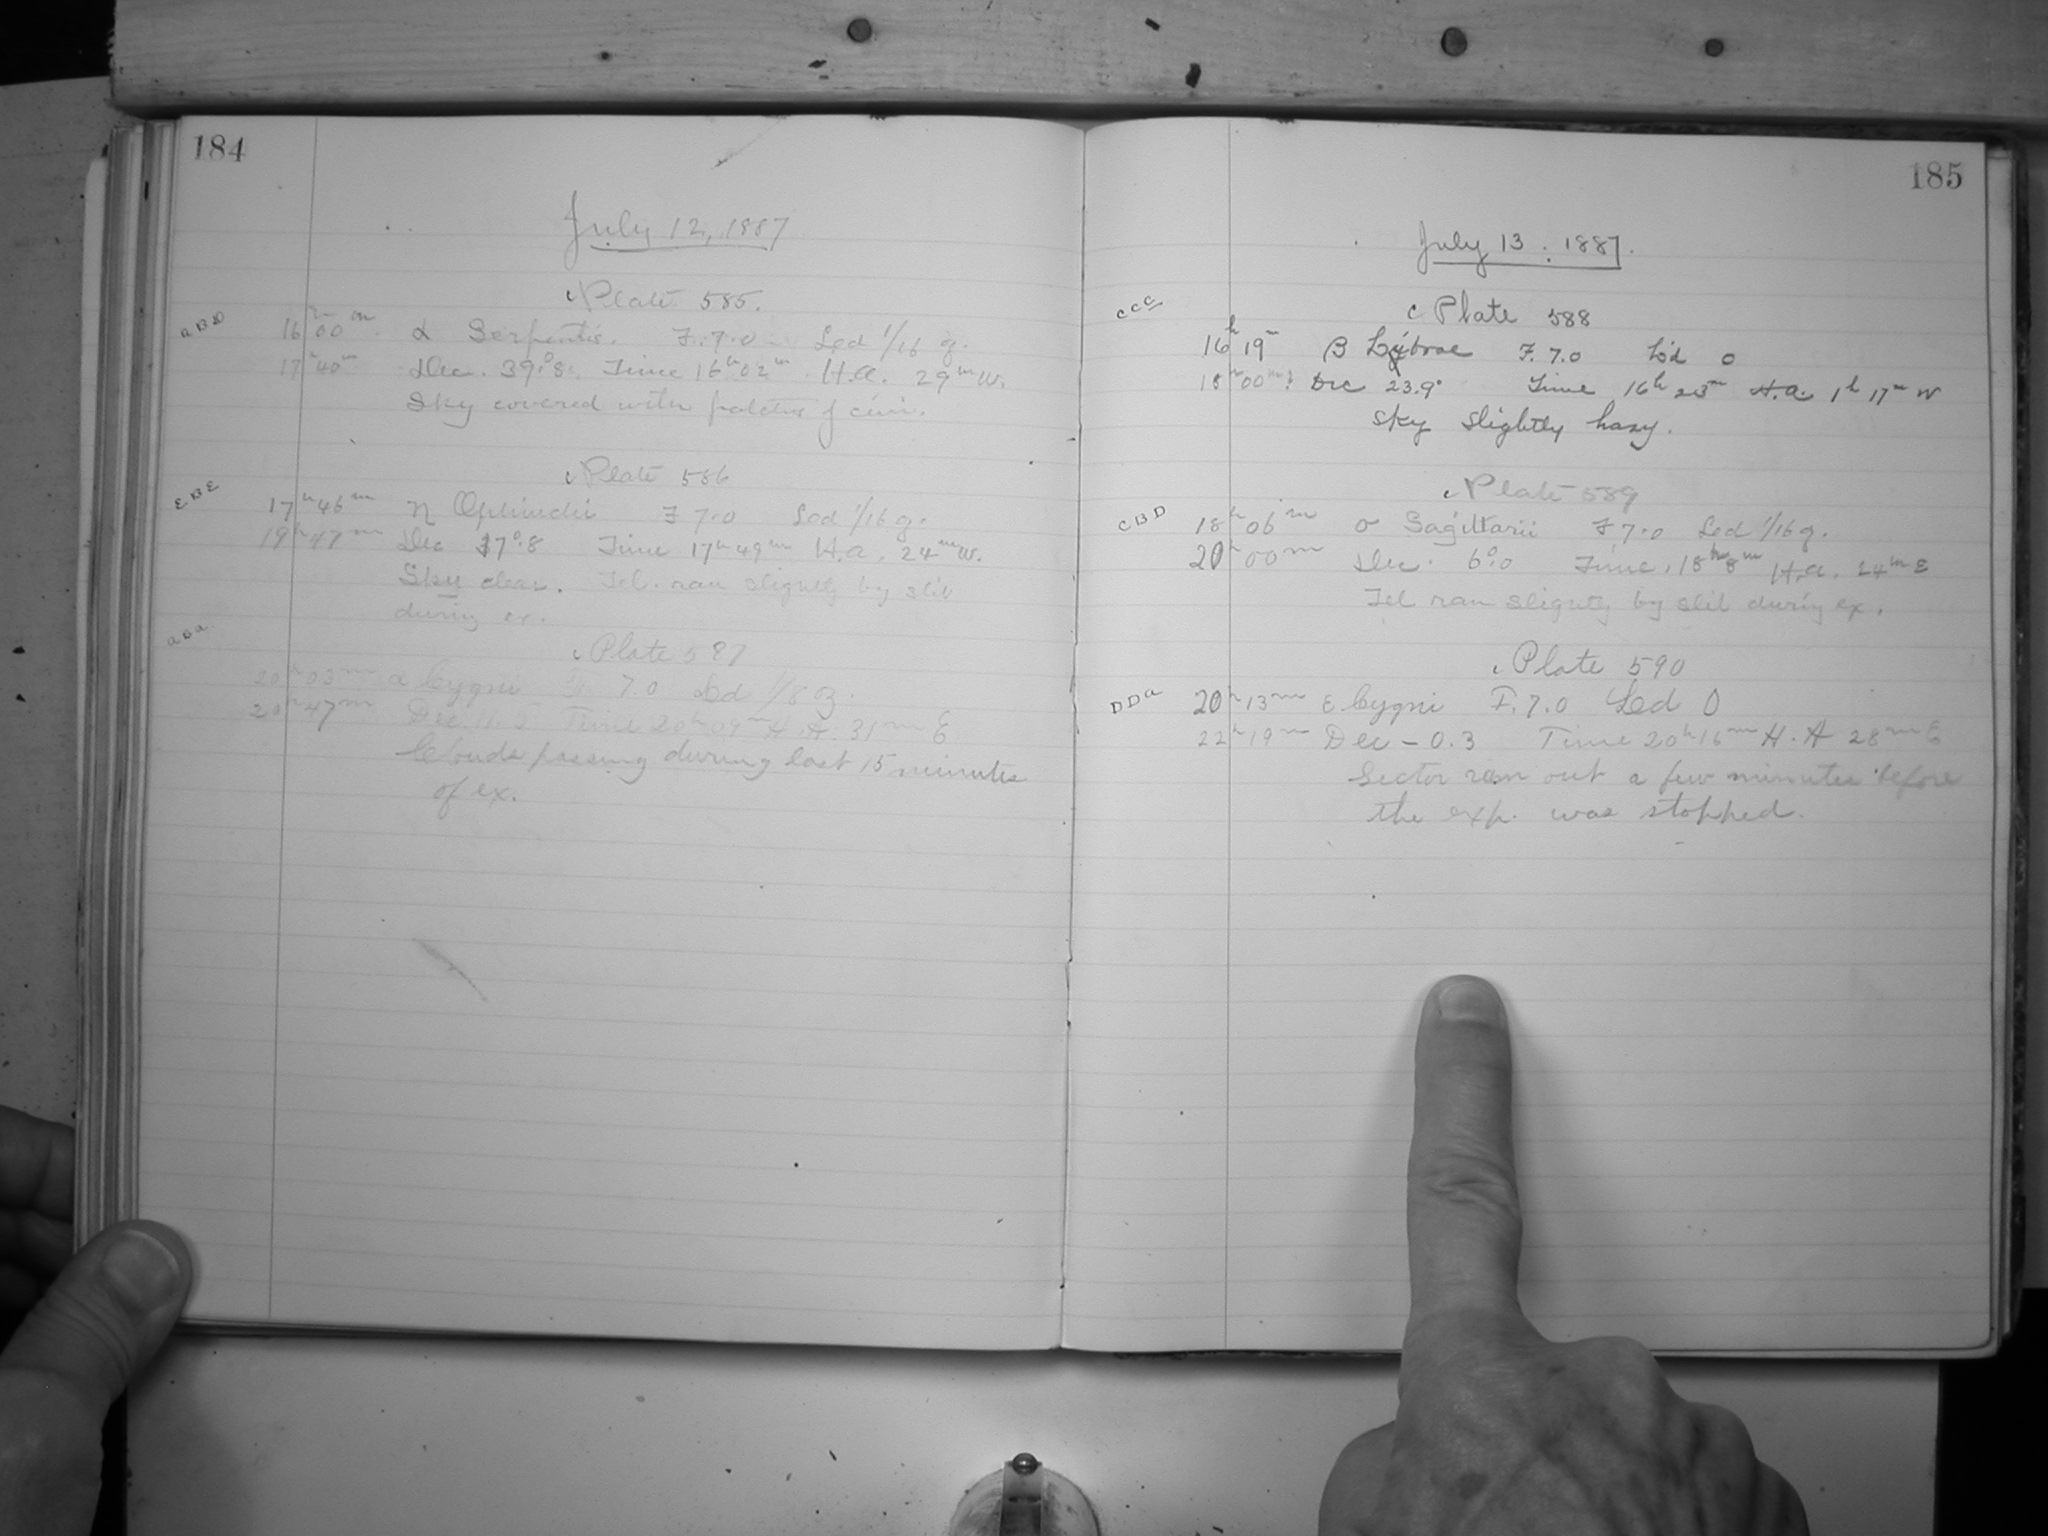 184
July 12, 1887
c Plate 585.
a B D
16h 00m α Serpentis. F. 7.0 Led 1/16 g.
17h 40m Dec. 39°.8. Time 16h 02m H.a. 29m W.
Sky covered with patches of cirri.
c Plate 586
E B E
17h 46m η Ophiuchi F 7.0 Led 1/16 g.
19h 47m Dec 17°.8 Time 17h 49m H.a. 24m W.
Sky clear. Tel. ran slightly by slit
during ex.
a D a
c Plate 587
20h 03m α Cygni F. 7.0 Led 1/8 g.
20h 47m Dec. Time 20h 09m H.A. 31m E
Clouds passing during last 15 minutes
of ex.
185
July 13. 1887.
c c c
c Plate 588
16h 19m β Librae F. 7.0 L'd 0
18h 00m Dec 23.9° Time 16h 23m H.a. 1h 17m W
Sky slightly hazy.
c Plate 589
C B D
18h 06m σ Sagittarii F 7.0 Led 1/16 g.
20h 00m Dec. 6°.0 Time. 18h 8m H.a. 24m E
Tel ran slightly by slit during ex.
c Plate 590
D D a
20h 13m ε Cygni F. 7.0 Led 0
22h 19m Dec - 0.3 Time 20h 16m H.A 28m E
Sector ran out a few minutes before
the exp. was stopped.